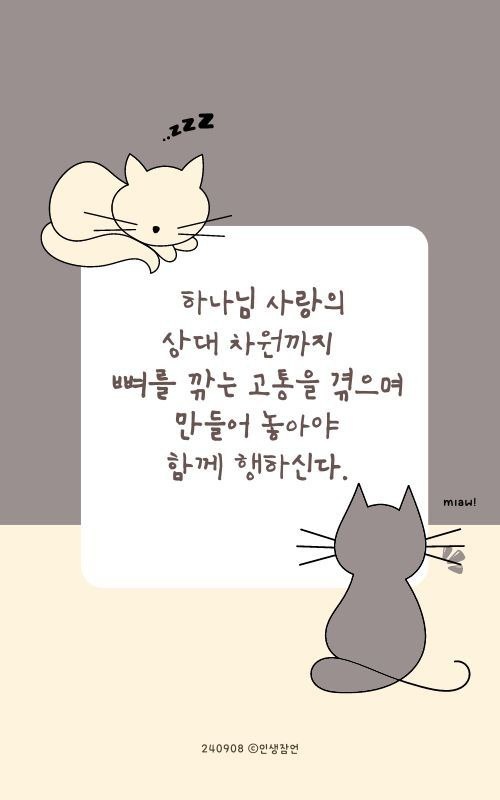 ..zzZZ
하나님 사랑의
상대 차원까지
뼈를 깎는 고통을 겪으며
만들어 놓아야
함께 행하신다.
miaw!
240908 ©인생잠언